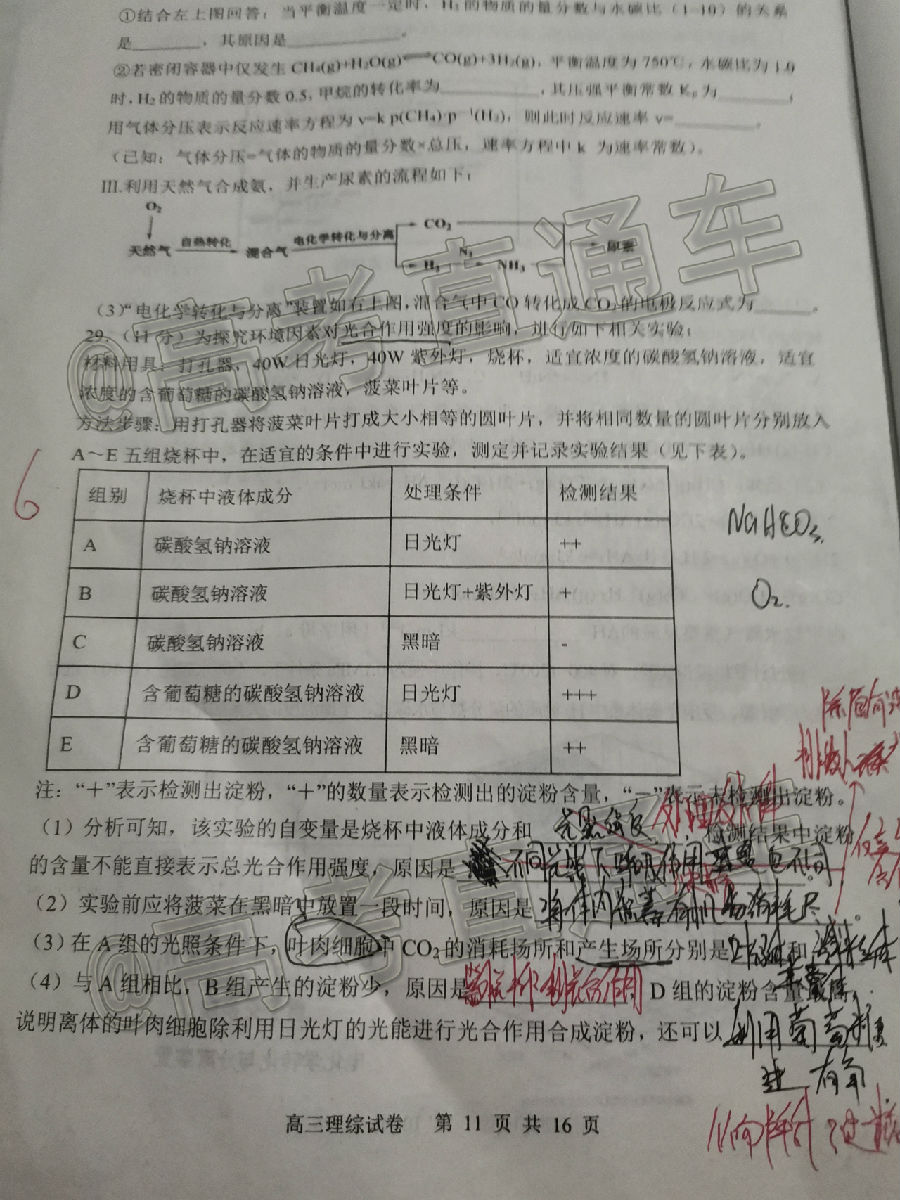 ①结合左上图回答：当平衡温度一定时，H₂的物质的量分数与水碳比（1-10）的关系
是________，其原因是____________。
②若密闭容器中仅发生CH₄(g)+H₂O(g)⇌CO(g)+3H₂(g)，平衡温度为750℃，水碳比为1.0
时，H₂的物质的量分数0.5，甲烷的转化率为__________，其压强平衡常数Kₚ为________；
用气体分压表示反应速率方程为v=k p(CH₄)·p⁻¹(H₂)，则此时反应速率v=________。
（已知：气体分压=气体的物质的量分数×总压，速率方程中k 为速率常数）。
III.利用天然气合成氨，并生产尿素的流程如下：
O₂
天然气 自热转化 混合气 电化学转化与分离 CO₂ H₂ N₂ NH₃ 尿素
（3）“电化学转化与分离”装置如右上图，混合气中CO转化成CO₂的电极反应式为______。
29.（11分）为探究环境因素对光合作用强度的影响，进行如下相关实验：
材料用具：打孔器，40W日光灯，40W紫外灯，烧杯，适宜浓度的碳酸氢钠溶液，适宜
浓度的含葡萄糖的碳酸氢钠溶液，菠菜叶片等。
方法步骤：用打孔器将菠菜叶片打成大小相等的圆叶片，并将相同数量的圆叶片分别放入
A～E五组烧杯中，在适宜的条件中进行实验，测定并记录实验结果（见下表）。
6
组别 烧杯中液体成分 处理条件 检测结果
A 碳酸氢钠溶液 日光灯 ++
B 碳酸氢钠溶液 日光灯+紫外灯 +
C 碳酸氢钠溶液 黑暗 -
D 含葡萄糖的碳酸氢钠溶液 日光灯 +++
E 含葡萄糖的碳酸氢钠溶液 黑暗 ++
O₂.
注：“＋”表示检测出淀粉，“＋”的数量表示检测出的淀粉含量，“－”表示未检测出淀粉。
（1）分析可知，该实验的自变量是烧杯中液体成分和 处理条件，检测结果中淀粉
的含量不能直接表示总光合作用强度，原因是 不同光照下呼吸作用 也不同
（2）实验前应将菠菜在黑暗中放置一段时间，原因是 将体内 有机物消耗尽。
（3）在A组的光照条件下，叶肉细胞中CO₂的消耗场所和产生场所分别是 叶绿体和线粒体
（4）与A组相比，B组产生的淀粉少，原因是 抑制光合作用 D组的淀粉含量最高，
说明离体的叶肉细胞除利用日光灯的光能进行光合作用合成淀粉，还可以 利用葡萄糖
高三理综试卷 第 11 页 共 16 页
@高考直通车
@高考直通车